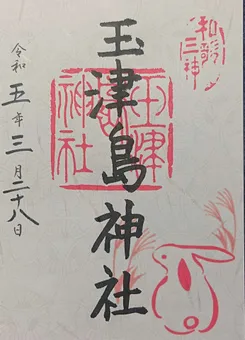 和歌三神
玉津島神社
玉津島神社
令和五年三月二十八日